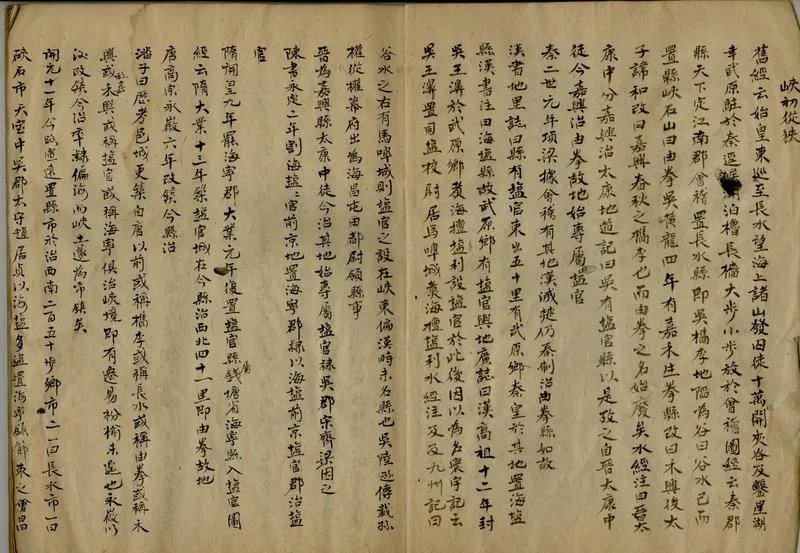 峽初從狹
舊經云始皇東巡至長水望海上諸山發囚徒十萬開夾谷及鑿星湖
幸武原駐於秦邏泊櫓長檣大步小步放於會稽圖經云秦郡
縣天下定江南郡會稽置長水縣即吳檇李地陷為谷曰谷水已而
置縣峽石山曰由拳吳黃龍四年有嘉禾生拳縣改曰禾興後太
子諱和改曰嘉興春秋之檇李也而由拳之名始廢矣水經注曰晉太
康中分嘉興治太康地道記曰吳有塩官縣以是攷之自晉太康中
徒今嘉興治由拳故地始專屬塩官
秦二世元年項梁據會稽有其地漢滅楚仍秦制治由拳縣如故
漢書地里誌曰縣有塩官東出五十里有武原鄉秦皇於其地置海塩
縣漢書注曰海塩縣故武原鄉有塩官輿地廣誌曰漢高祖十二年封
吳王濞於武原鄉煑海擅塩利設塩官於此後因以為名寰宇記云
吳王濞置司塩校尉居馬嘷城煑海擅塩利水經注及九州記曰
谷水之右有馬嘷城則塩官之設在峽東偏漢時未名縣也吳陸遜傳載孫
權從權幕府出為海昌屯田都尉領縣事
晉為嘉興縣太康中徒今治其地始專屬塩官祿吳郡宋齊梁因之
陳書永定二年割海塩二官前京地置海寧郡隸以海塩前京塩官郡治塩
官
隋開皇九年罷海寧郡大業元年復置塩官縣屬錢塘省海寧縣入塩官圖
經云隋大業十三年築塩官城在今縣治西北四十一里即由拳故地
唐高宗永嶶六年改築今縣治
潘子曰歷考邑城更築自唐以前或稱檇李或稱長水或稱由拳或稱禾
興或嘉興或稱塩官或稱海寧俱治峽境即有遷易枌榆未遠也永嶶以
改築今治率隸偏海而峽土遂為市鎮矣
開元十一年令路遠置縣市於治西南二百五十步鄉市二一曰長水市一曰
硤石市天宝中吳郡太守趙居貞以海塩多盜置海寧鎮節